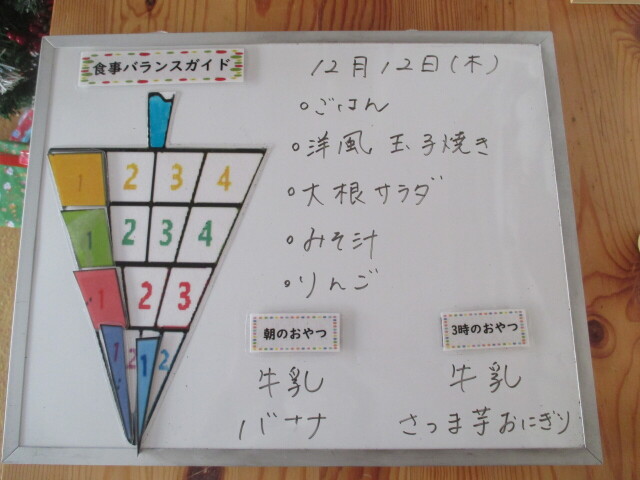 食事バランスガイド
12月12日(木)
・ごはん
・洋風玉子焼き
・大根サラダ
・みそ汁
・りんご
1 2 3 4
1 2 3 4
1 2 3
1 2 1 2
朝のおやつ
牛乳
バナナ
3時のおやつ
牛乳
さつま芋おにぎり